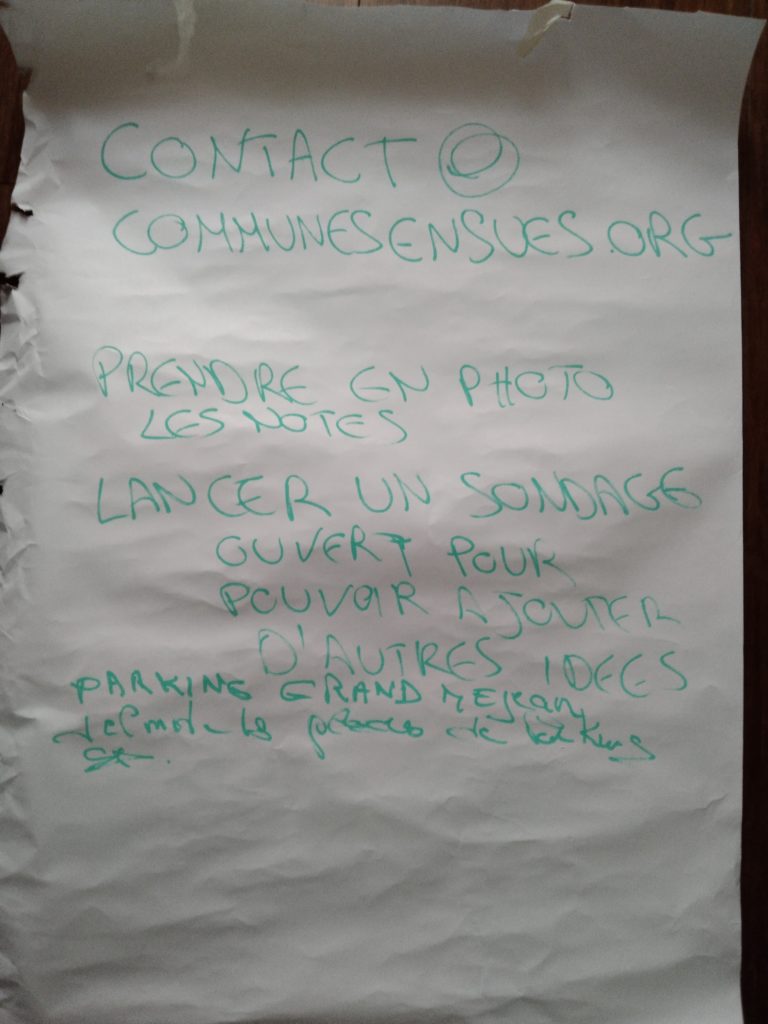 CONTACT @
COMMUNESENSUES.ORG
PRENDRE EN PHOTO
LES NOTES
LANCER UN SONDAGE
OUVERT POUR
POUVOIR AJOUTER
D'AUTRES IDEES
PARKING GRAND MEJEAN
places de